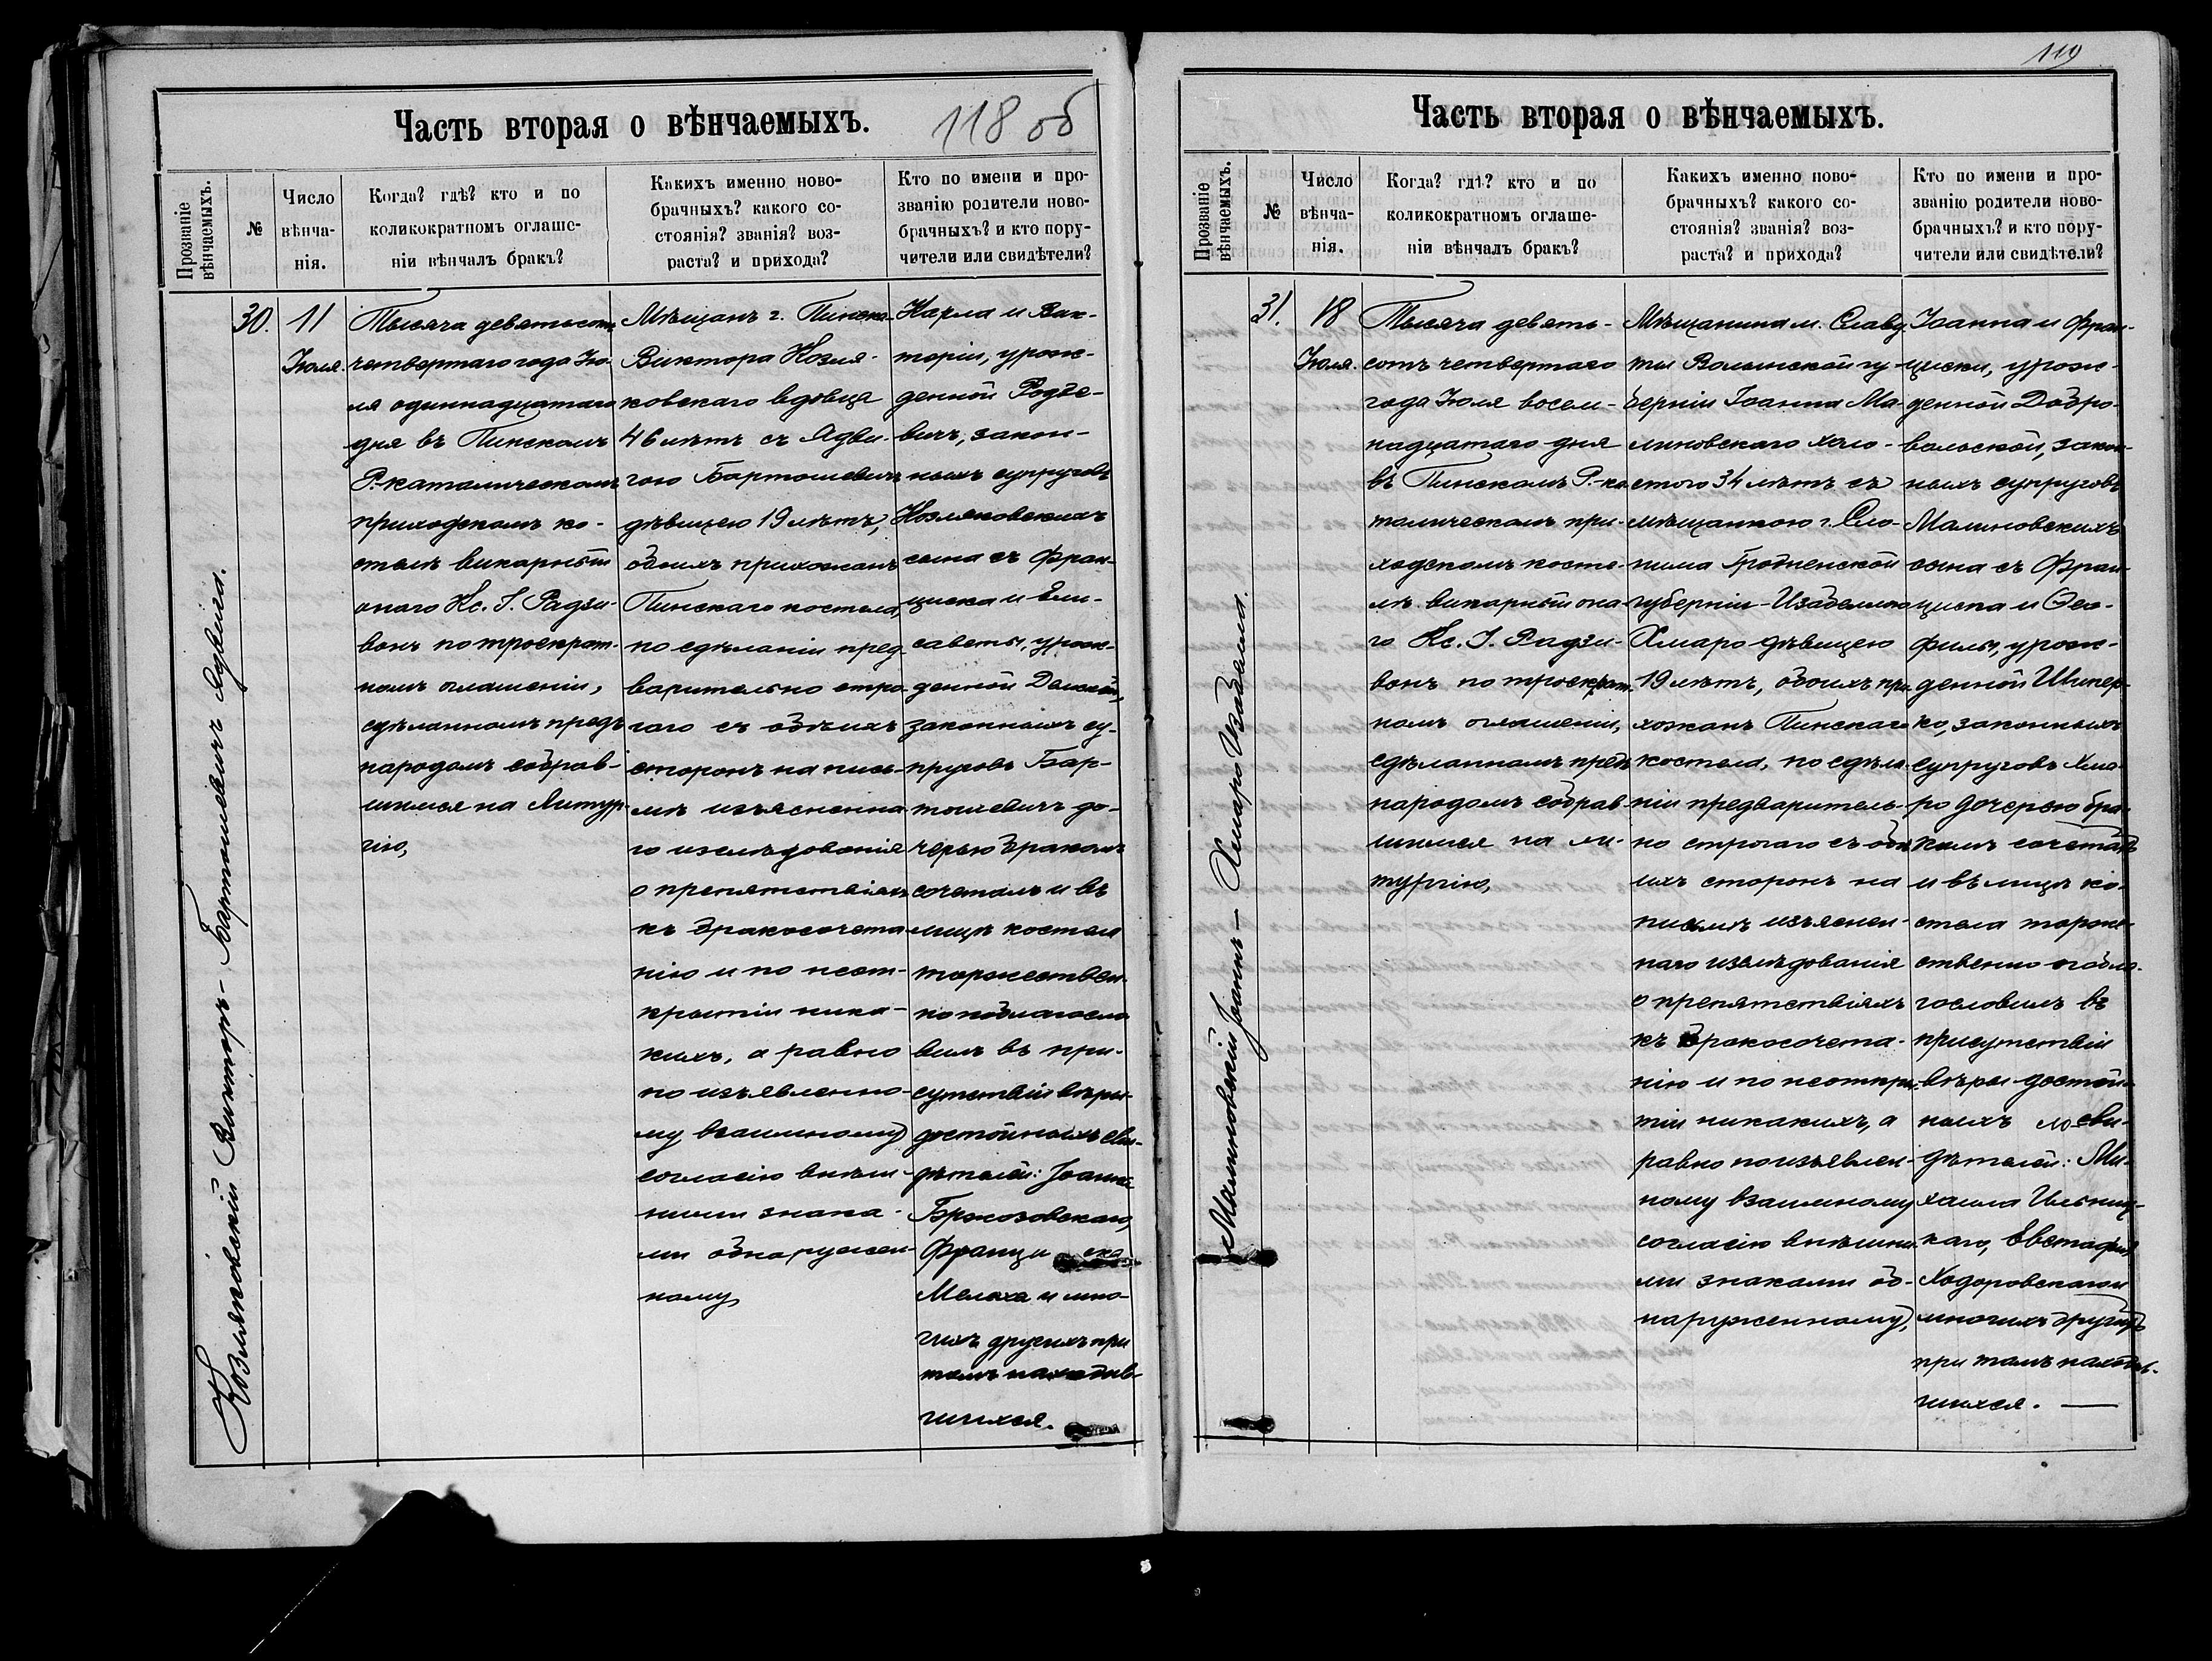 Часть вторая о вѣнчаемыхъ.
118 об
Прозваніе вѣнчаемыхъ.
№
Число
вѣнча-
нія.
Когда? гдѣ? кто и по
коликократномъ оглаше-
ніи вѣнчалъ бракъ?
Какихъ именно ново-
брачныхъ? какого со-
стоянія? званія? воз-
раста? и прихода?
Кто по имени и про-
званію родители ново-
брачныхъ? и кто пору-
чители или свидѣтели?
Козляковскій Викторъ - Бартошевичъ Ядвига.
30.
11
Іюля.
Тысяча девятьсотъ
четвертаго года Ію-
ля одиннадцатаго
дня въ Пинскомъ
Р.-католическомъ
приходскомъ ко-
стелѣ викарный
онаго Кс. І. Радзи-
вонъ по троекрат-
номъ оглашеніи,
сдѣланномъ предъ
народомъ собрав-
шимся на Литур-
гію,
Мѣщанъ г. Пинска
Виктора Козля-
ковскаго вдовца
46 лѣтъ съ Ядви-
гою Бартошевичъ
дѣвицею 19 лѣтъ,
обоихъ прихожанъ
Пинскаго костела,
по сдѣланіи пред-
варительно стро-
гаго съ обѣихъ
сторонъ на пись-
мѣ изъясненна-
го изслѣдованія
о препятствіяхъ
къ бракосочета-
нію и по неот-
крытіи ника-
кихъ, а равно
по изъявленно-
му взаимному
согласію внѣш-
ними знака-
ми обнаружен-
ному,
Карла и Вик-
торіи, урож-
денной Родзе-
вичъ, закон-
ныхъ супруговъ
Козляковскихъ
сына съ Фран-
циска и Ели-
саветы, урож-
денной
законныхъ су-
пруговъ Бар-
тошевичъ до-
черью бракомъ
сочеталъ и въ
лицѣ костела
торжествен-
но поблагосло-
вилъ въ при-
сутствіи вѣры
достойныхъ сви-
дѣтелей: Іоанна
Бржозовскаго,
Франциска
Мелеха и мно-
гихъ другихъ при
томъ находив-
шихся.
119
Часть вторая о вѣнчаемыхъ.
Прозваніе вѣнчаемыхъ.
№
Число
вѣнча-
нія.
Когда? гдѣ? кто и по
коликократномъ оглаше-
ніи вѣнчалъ бракъ?
Какихъ именно ново-
брачныхъ? какого со-
стоянія? званія? воз-
раста? и прихода?
Кто по имени и про-
званію родители ново-
брачныхъ? и кто пору-
чители или свидѣтели?
Малиновскій Іоаннъ - Хмаро Изабелла.
31.
18
Іюля.
Тысяча девять-
сотъ четвертаго
года Іюля восем-
надцатаго дня
въ Пинскомъ Р.-ка-
толическомъ при-
ходскомъ косте-
лѣ викарный она-
го Кс. І. Радзи-
вонъ по троекрат-
номъ оглашеніи,
сдѣланномъ предъ
народомъ собрав-
шимся на ли-
тургію,
Мѣщанина м. Славу-
ты Волынской гу-
берніи Іоанна Ма-
линовскаго холо-
стого 34 лѣтъ съ
мѣщанкою г. Сло-
нима Гродненской
губерніи Изабеллою
Хмаро дѣвицею
19 лѣтъ, обоихъ при-
хожанъ Пинскаго
костела, по сдѣла-
ніи предваритель-
но строгаго съ обѣ-
ихъ сторонъ на
письмѣ изъяснен-
наго изслѣдованія
о препятствіяхъ
къ бракосочета-
нію и по неоткры-
тіи никакихъ, а
равно по изъявлен-
ному взаимному
согласію внѣшни-
ми знаками об-
наруженному,
Іоанна и Фран-
циски, урож-
денной Добро-
вольской, закон-
ныхъ супруговъ
Малиновскихъ
сына съ Фран-
циска и Ѳео-
филы, урож-
денной Шипер-
ко, законныхъ
супруговъ Хма-
ро дочерью бра-
комъ сочеталъ
и въ лицѣ ко-
стела торже-
ственно побла-
гословилъ въ
присутствіи
вѣры достой-
ныхъ сви-
дѣтелей: Ми-
хаила Ильниц-
каго, Евстафія
Ходоровскаго и
многихъ другихъ
при томъ находив-
шихся. —